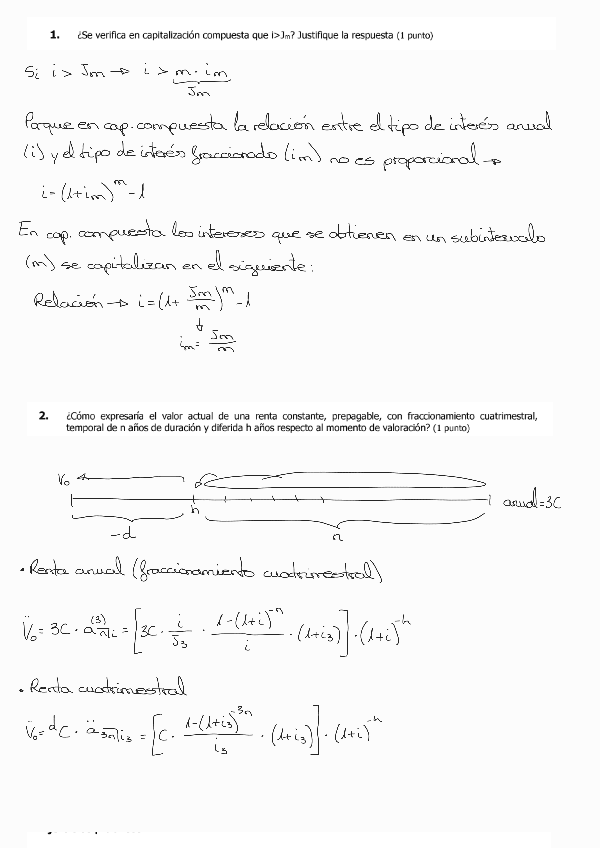 1. ¿Se verifica en capitalización compuesta que i>Jm? Justifique la respuesta (1 punto)
Si i > Jm → i > m · im
Jm
Porque en cap. compuesta la relación entre el tipo de interés anual
(i) y el tipo de interés fraccionado (im) no es proporcional →
i = (1+im)^m - 1
En cap. compuesta los intereses que se obtienen en un subintervalo
(m) se capitalizan en el siguiente:
Relación → i = (1 + Jm/m)^m - 1
↓
im = Jm/m
2. ¿Cómo expresaría el valor actual de una renta constante, prepagable, con fraccionamiento cuatrimestral,
temporal de n años de duración y diferida h años respecto al momento de valoración? (1 punto)
V₀ h anual=3C
-d n
• Renta anual (fraccionamiento cuatrimestral)
V̈₀ = 3C · ä^(3) n⌉i = [3C · i/J₃ · (1-(1+i)^-n)/i · (1+i₃)] · (1+i)^-h
• Renta cuatrimestral
V̈₀ = d C · ä 3n⌉i₃ = [C · (1-(1+i₃)^-3n)/i₃ · (1+i₃)] · (1+i)^-h